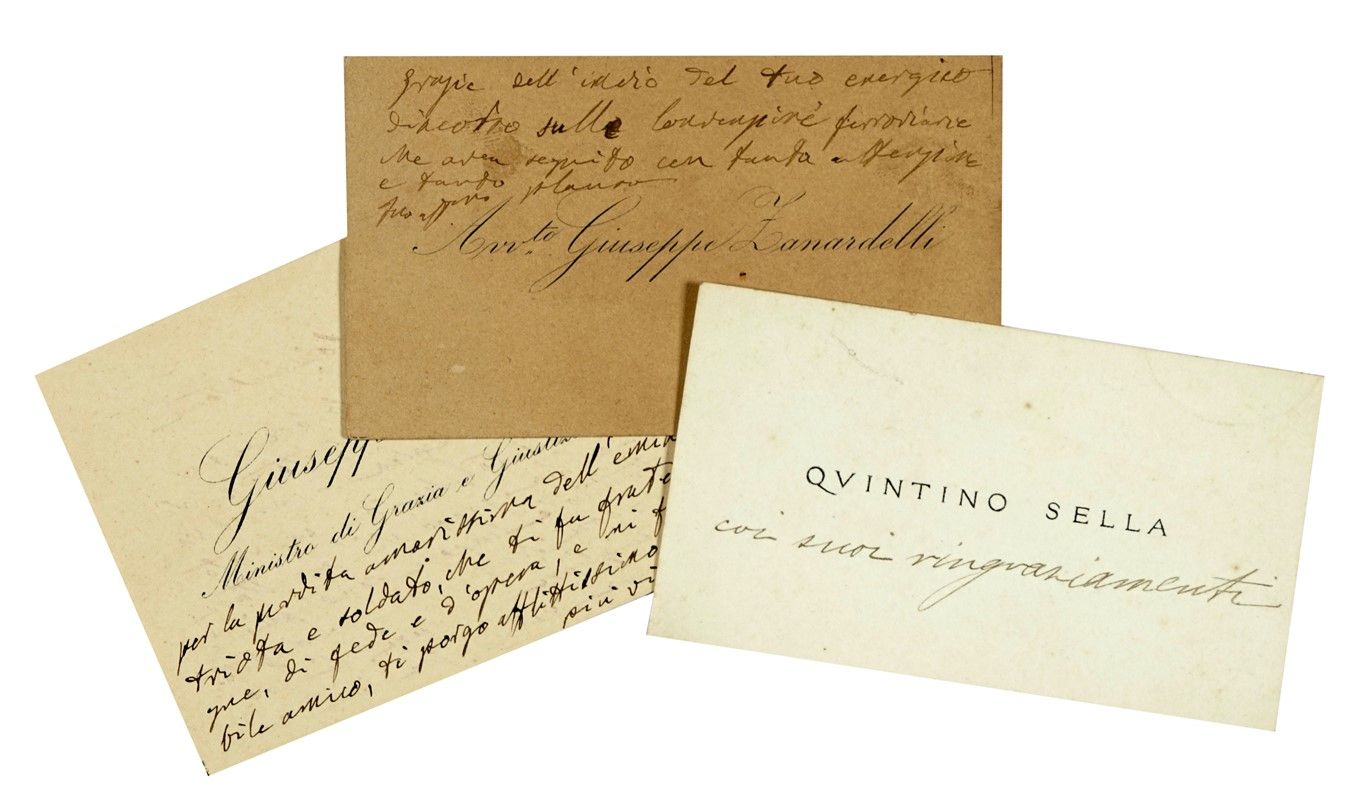 grazie dell'invio del tuo energico
discorso sulle Convenzioni ferroviarie
che avea seguito con tanta attenzione
e tanto plauso
Avv.to Giuseppe Zanardelli
Giusepp
Ministro di Grazia e Giustiz
per la perdita amarissima dell'
triota e soldato, che ti fu frate
que, di fede e d'opera, e
bile amico, ti porgo afflittissimo
più vi
QVINTINO SELLA
coi suoi ringraziamenti